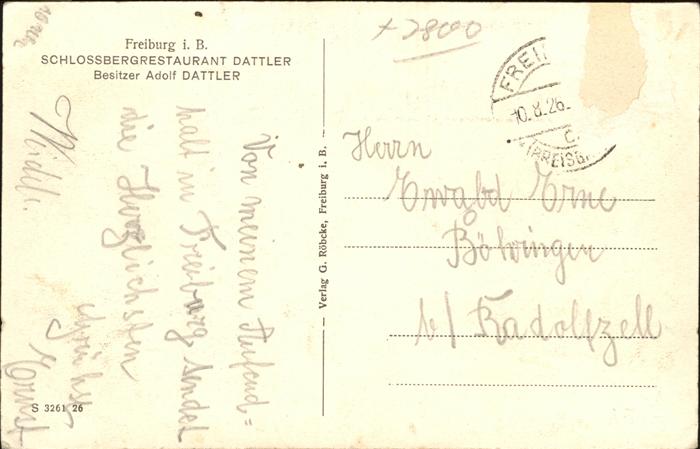 Freiburg i. B.
SCHLOSSBERGRESTAURANT DATTLER
Besitzer Adolf DATTLER
Von meinem Aufend=
halt in Freiburg sendet
die Herzlichsten
Grühse
Ernst
S 3261 26
Verlag G. Röbcke, Freiburg i. B.
+ 2800
10.8.26.
(BREISG
Herrn
Ewald Erne
Böhringen
b/ Radolfzell